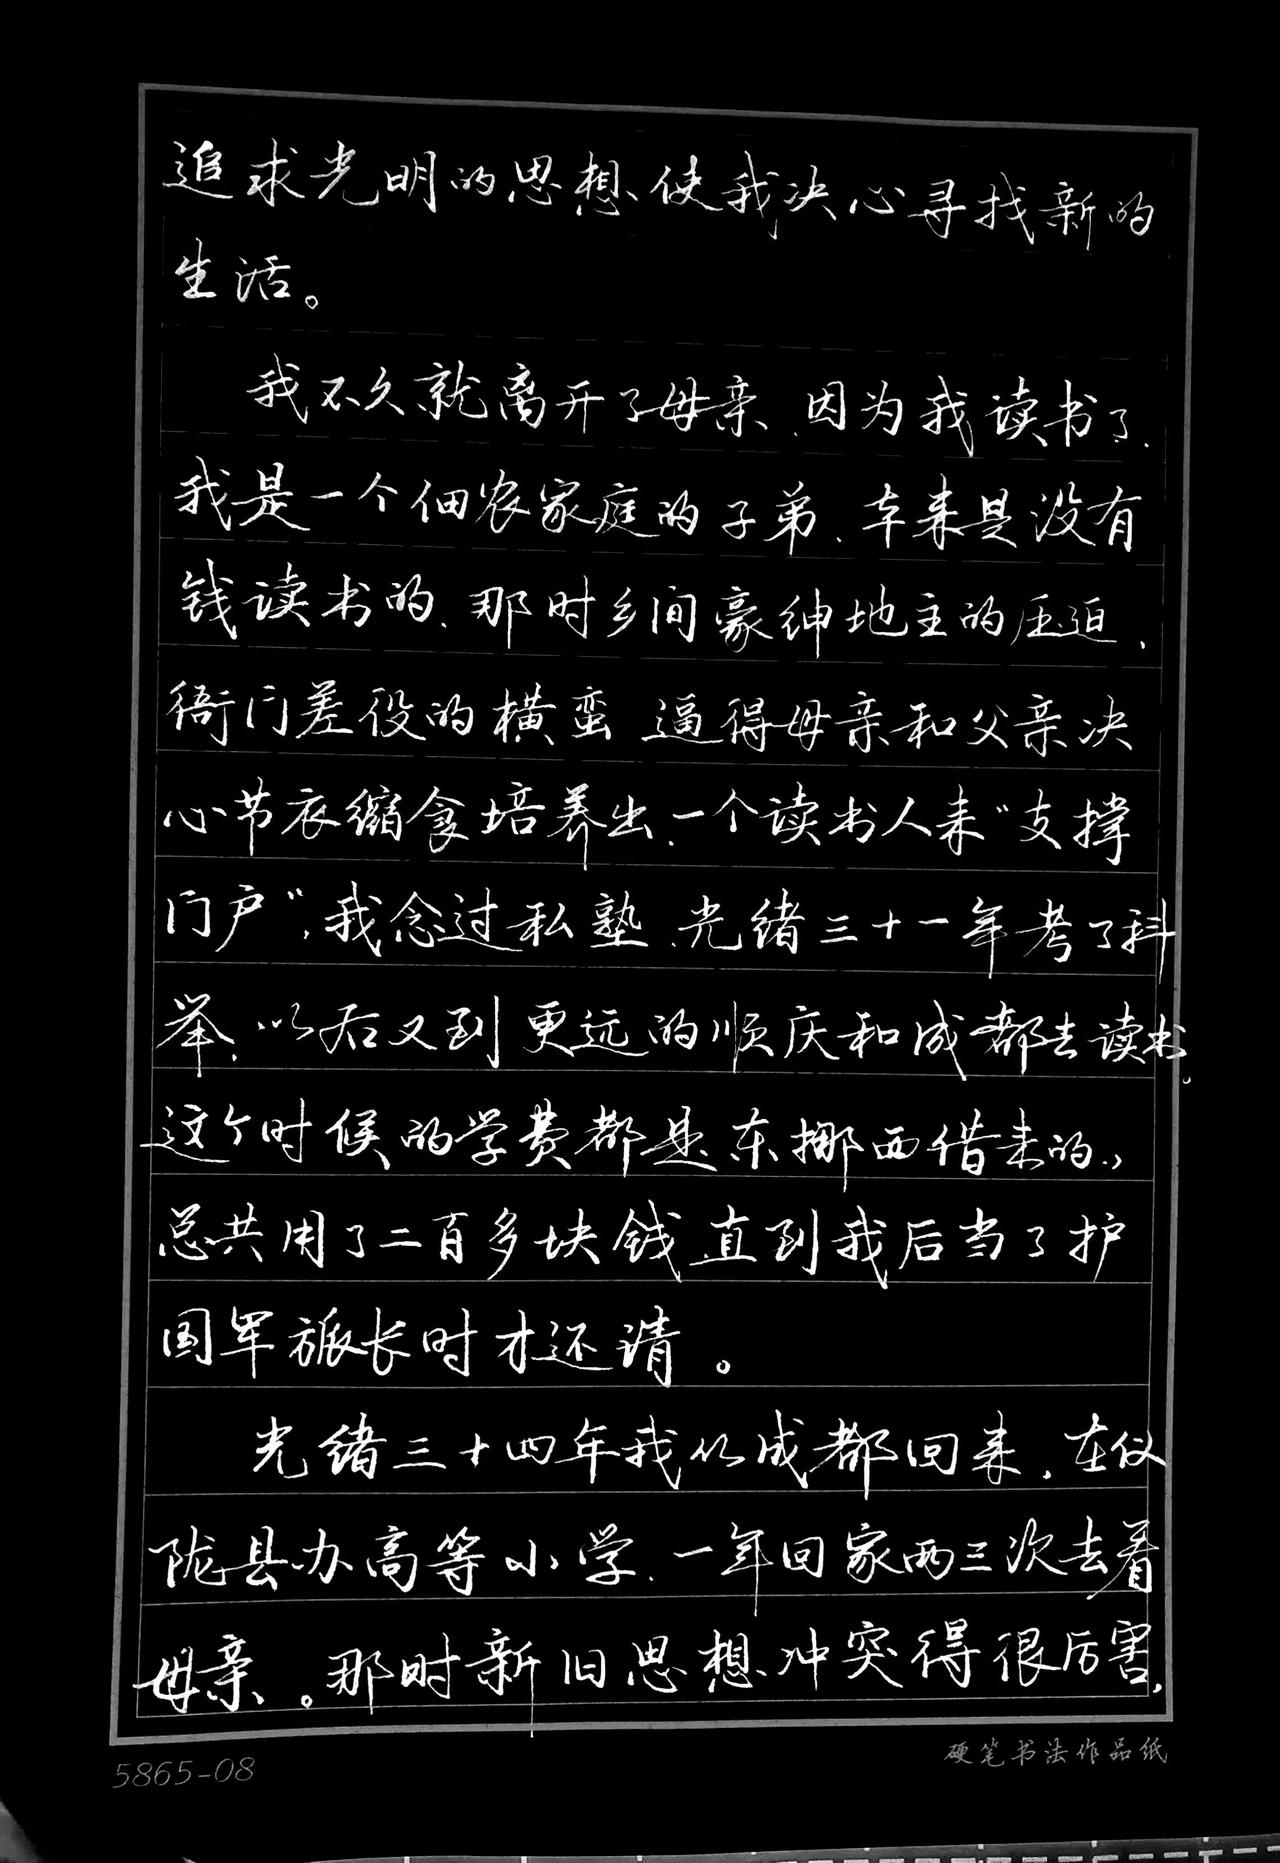 追求光明的思想、使我决心寻找新的
生活。
我不久就离开了母亲、因为我读书了、
我是一个佃农家庭的子弟、本来是没有
钱读书的、那时乡间豪绅地主的压迫、
衙门差役的横蛮 逼得母亲和父亲决
心节衣缩食培养出、一个读书人来“支撑
门户”，我念过私塾、光绪三十一年考了科
举、以后又到更远的顺庆和成都去读书。
这个时候的学费都是东挪西借来的、，
总共用了二百多块钱 直到我后当了护
国军旅长时才还清。
光绪三十四年我从成都回来、在仪
陇县办高等小学、一年回家两三次去看
母亲、。那时新旧思想、冲突得很厉害、
5865-08
硬笔书法作品纸